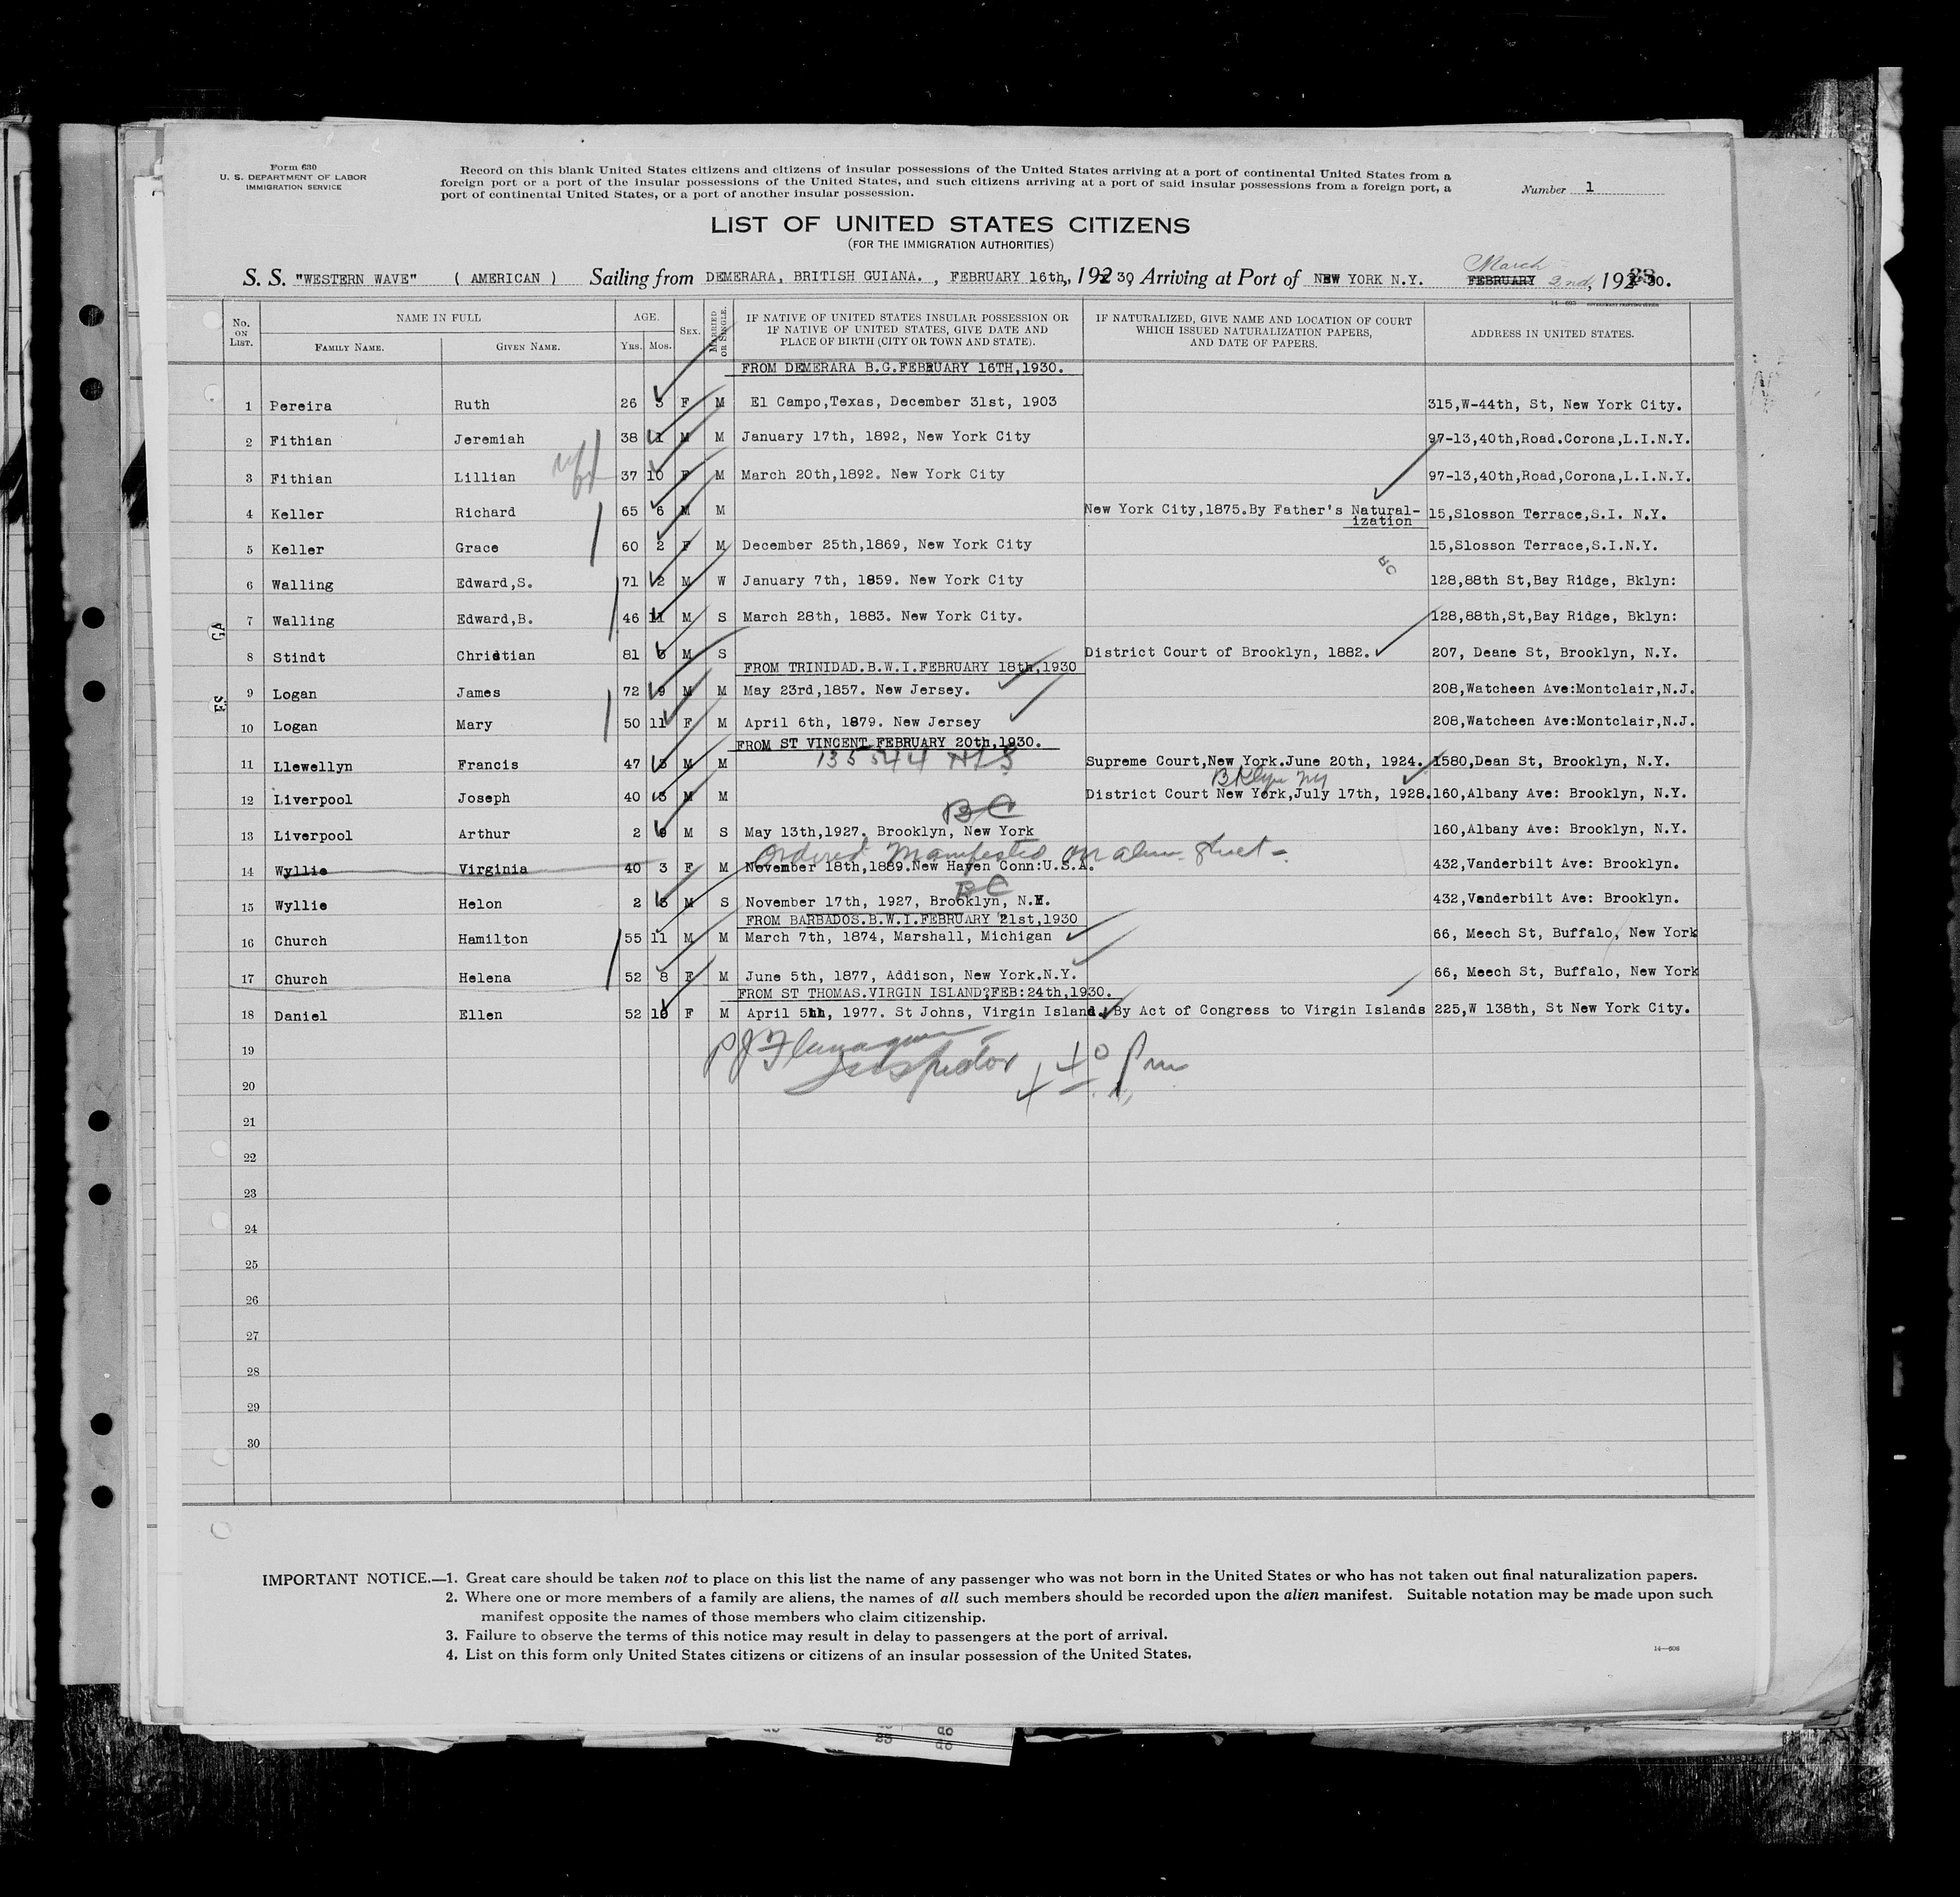 Form 630
U. S. DEPARTMENT OF LABOR
IMMIGRATION SERVICE
Record on this blank United States citizens and citizens of insular possessions of the United States arriving at a port of continental United States from a
foreign port or a port of the insular possessions of the United States, and such citizens arriving at a port of said insular possessions from a foreign port, a
port of continental United States, or a port of another insular possession.
Number 1
LIST OF UNITED STATES CITIZENS
(FOR THE IMMIGRATION AUTHORITIES)
S. S. "WESTERN WAVE" ( AMERICAN ) Sailing from DEMERARA, BRITISH GUIANA. , FEBRUARY 16th,, 192 30, Arriving at Port of NEW YORK N.Y. FEBRUARY March 2nd, 192 30.
No. ON LIST. NAME IN FULL AGE. SEX. MARRIED OR SINGLE. IF NATIVE OF UNITED STATES INSULAR POSSESSION OR IF NATIVE OF UNITED STATES, GIVE DATE AND PLACE OF BIRTH (CITY OR TOWN AND STATE). IF NATURALIZED, GIVE NAME AND LOCATION OF COURT WHICH ISSUED NATURALIZATION PAPERS, AND DATE OF PAPERS. ADDRESS IN UNITED STATES.
FAMILY NAME. GIVEN NAME. YRS. MOS.
FROM DEMERARA B.G.FEBRUARY 16TH,1930.
1 Pereira Ruth 26 3 F M El Campo,Texas, December 31st, 1903 315,W-44th, St, New York City.
2 Fithian Jeremiah 38 1 M M January 17th, 1892, New York City 97-13,40th,Road.Corona,L.I.N.Y.
3 Fithian Lillian 37 10 F M March 20th,1892. New York City 97-13,40th,Road,Corona,L.I.N.Y.
4 Keller Richard 65 6 M M New York City,1875.By Father's Natural-
ization 15,Slosson Terrace,S.I. N.Y.
5 Keller Grace 60 2 F M December 25th,1869, New York City 15,Slosson Terrace,S.I.N.Y.
6 Walling Edward,S. 71 2 M W January 7th, 1859. New York City 128,88th St,Bay Ridge, Bklyn:
7 Walling Edward,B. 46 11 M S March 28th, 1883. New York City. 128,88th,St,Bay Ridge, Bklyn:
8 Stindt Christian 81 M S District Court of Brooklyn, 1882. 207, Deane St, Brooklyn, N.Y.
FROM TRINIDAD.B.W.I.FEBRUARY 18th,1930
9 Logan James 72 9 M M May 23rd,1857. New Jersey. 208,Watcheen Ave:Montclair,N.J.
10 Logan Mary 50 11 F M April 6th, 1879. New Jersey 208,Watcheen Ave:Montclair,N.J.
FROM ST VINCENT FEBRUARY 20th,1930.
135544
11 Llewellyn Francis 47 M M Supreme Court,New York.June 20th, 1924. 1580,Dean St, Brooklyn, N.Y.
Bklyn NY
12 Liverpool Joseph 40 M M District Court New York,July 17th, 1928. 160,Albany Ave: Brooklyn, N.Y.
BC
13 Liverpool Arthur 2 9 M S May 13th,1927. Brooklyn, New York 160,Albany Ave: Brooklyn, N.Y.
Ordered Manifested on alien sheet -
14 Wyllie Virginia 40 3 F M November 18th,1889.New Haven Conn:U.S.A. 432,Vanderbilt Ave: Brooklyn.
BC
15 Wyllie Helon 2 M S November 17th, 1927, Brooklyn, N.Y. 432,Vanderbilt Ave: Brooklyn.
FROM BARBADOS.B.W.I.FEBRUARY 21st,1930
16 Church Hamilton 55 11 M M March 7th, 1874, Marshall, Michigan 66, Meech St, Buffalo, New York
17 Church Helena 52 8 F M June 5th, 1877, Addison, New York.N.Y. 66, Meech St, Buffalo, New York
FROM ST THOMAS.VIRGIN ISLAND?FEB:24th,1930.
18 Daniel Ellen 52 10 F M April 5th, 1977. St Johns, Virgin Island. By Act of Congress to Virgin Islands 225,W 138th, St New York City.
19
P J Flanagan
Inspector
20
21
22
23
24
25
26
27
28
29
30
IMPORTANT NOTICE.—1. Great care should be taken not to place on this list the name of any passenger who was not born in the United States or who has not taken out final naturalization papers.
2. Where one or more members of a family are aliens, the names of all such members should be recorded upon the alien manifest. Suitable notation may be made upon such
manifest opposite the names of those members who claim citizenship.
3. Failure to observe the terms of this notice may result in delay to passengers at the port of arrival.
4. List on this form only United States citizens or citizens of an insular possession of the United States.